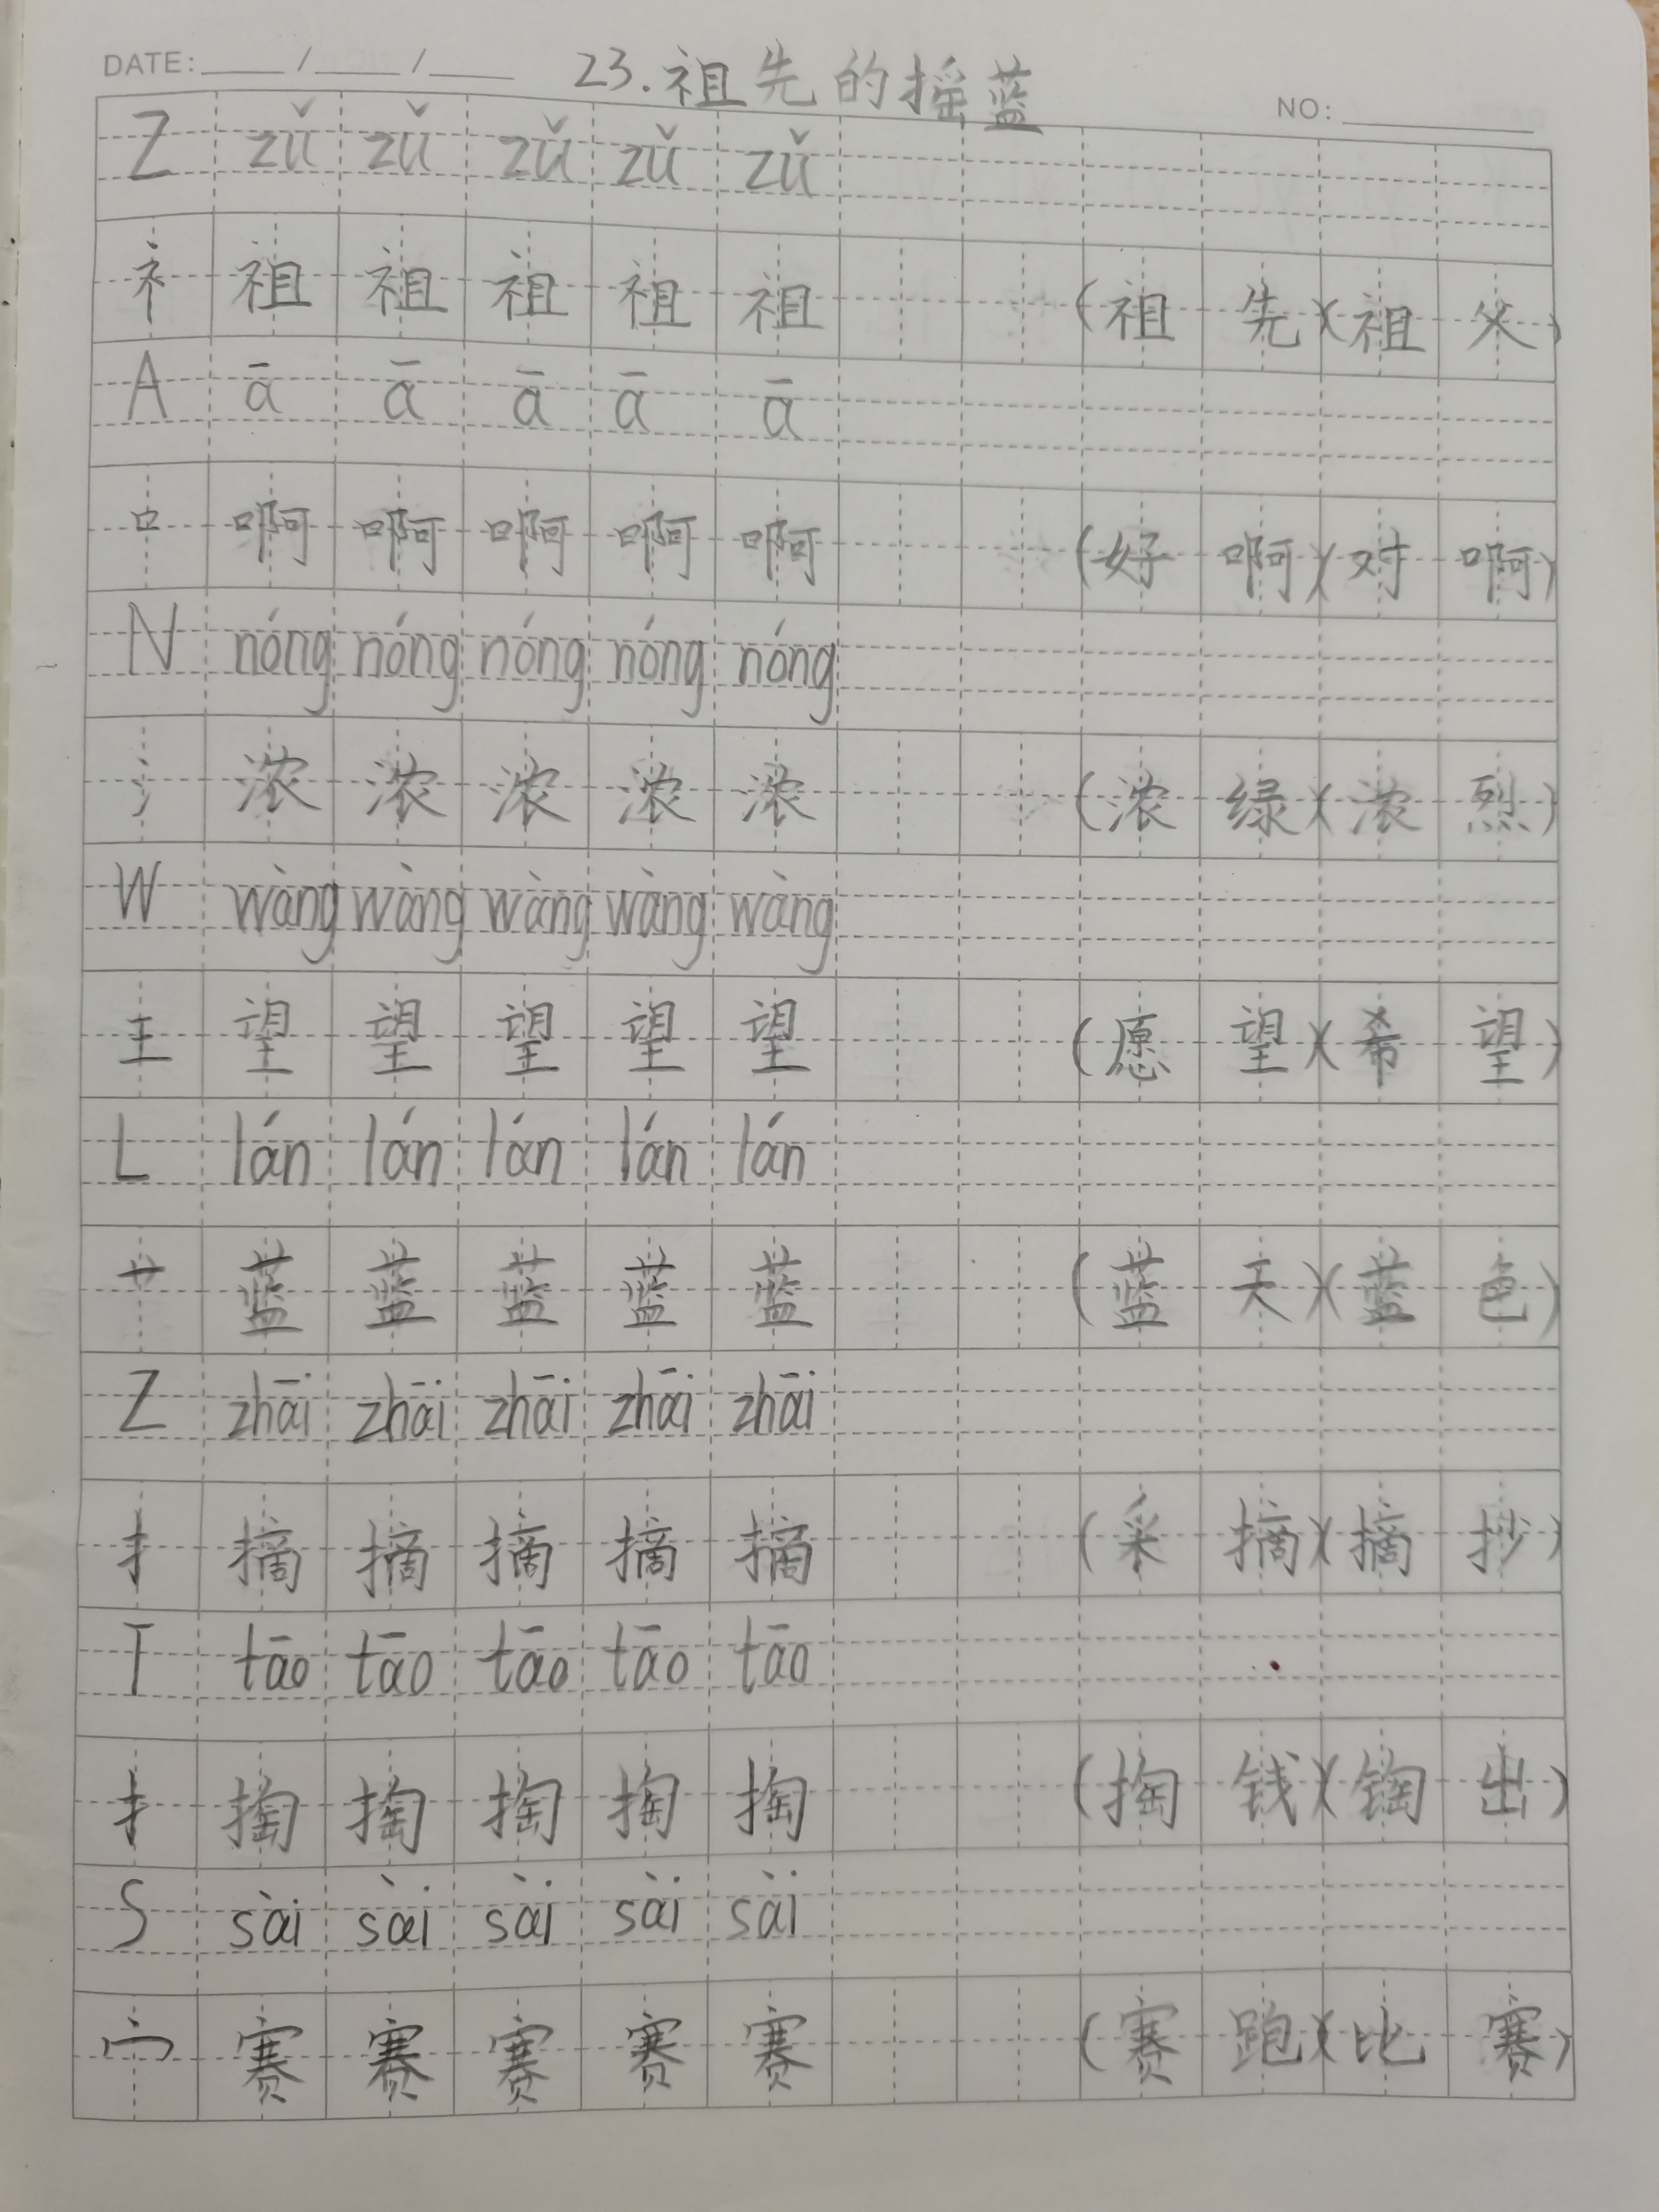 DATE: ____/____/____ 23.祖先的摇蓝 NO: ________
Z zǔ zǔ zǔ zǔ zǔ
礻 祖 祖 祖 祖 祖 (祖先)(祖父)
A ā ā ā ā ā
口 啊 啊 啊 啊 啊 (好啊)(对啊)
N nóng nóng nóng nóng nóng
氵 浓 浓 浓 浓 浓 (浓绿)(浓烈)
W wàng wàng wàng wàng wàng
王 望 望 望 望 望 (愿望)(希望)
L lán lán lán lán lán
艹 蓝 蓝 蓝 蓝 蓝 (蓝天)(蓝色)
Z zhāi zhāi zhāi zhāi zhāi
扌 摘 摘 摘 摘 摘 (采摘)(摘抄)
T tāo tāo tāo tāo tāo
扌 掏 掏 掏 掏 掏 (掏钱)(掏出)
S sài sài sài sài sài
宀 赛 赛 赛 赛 赛 (赛跑)(比赛)